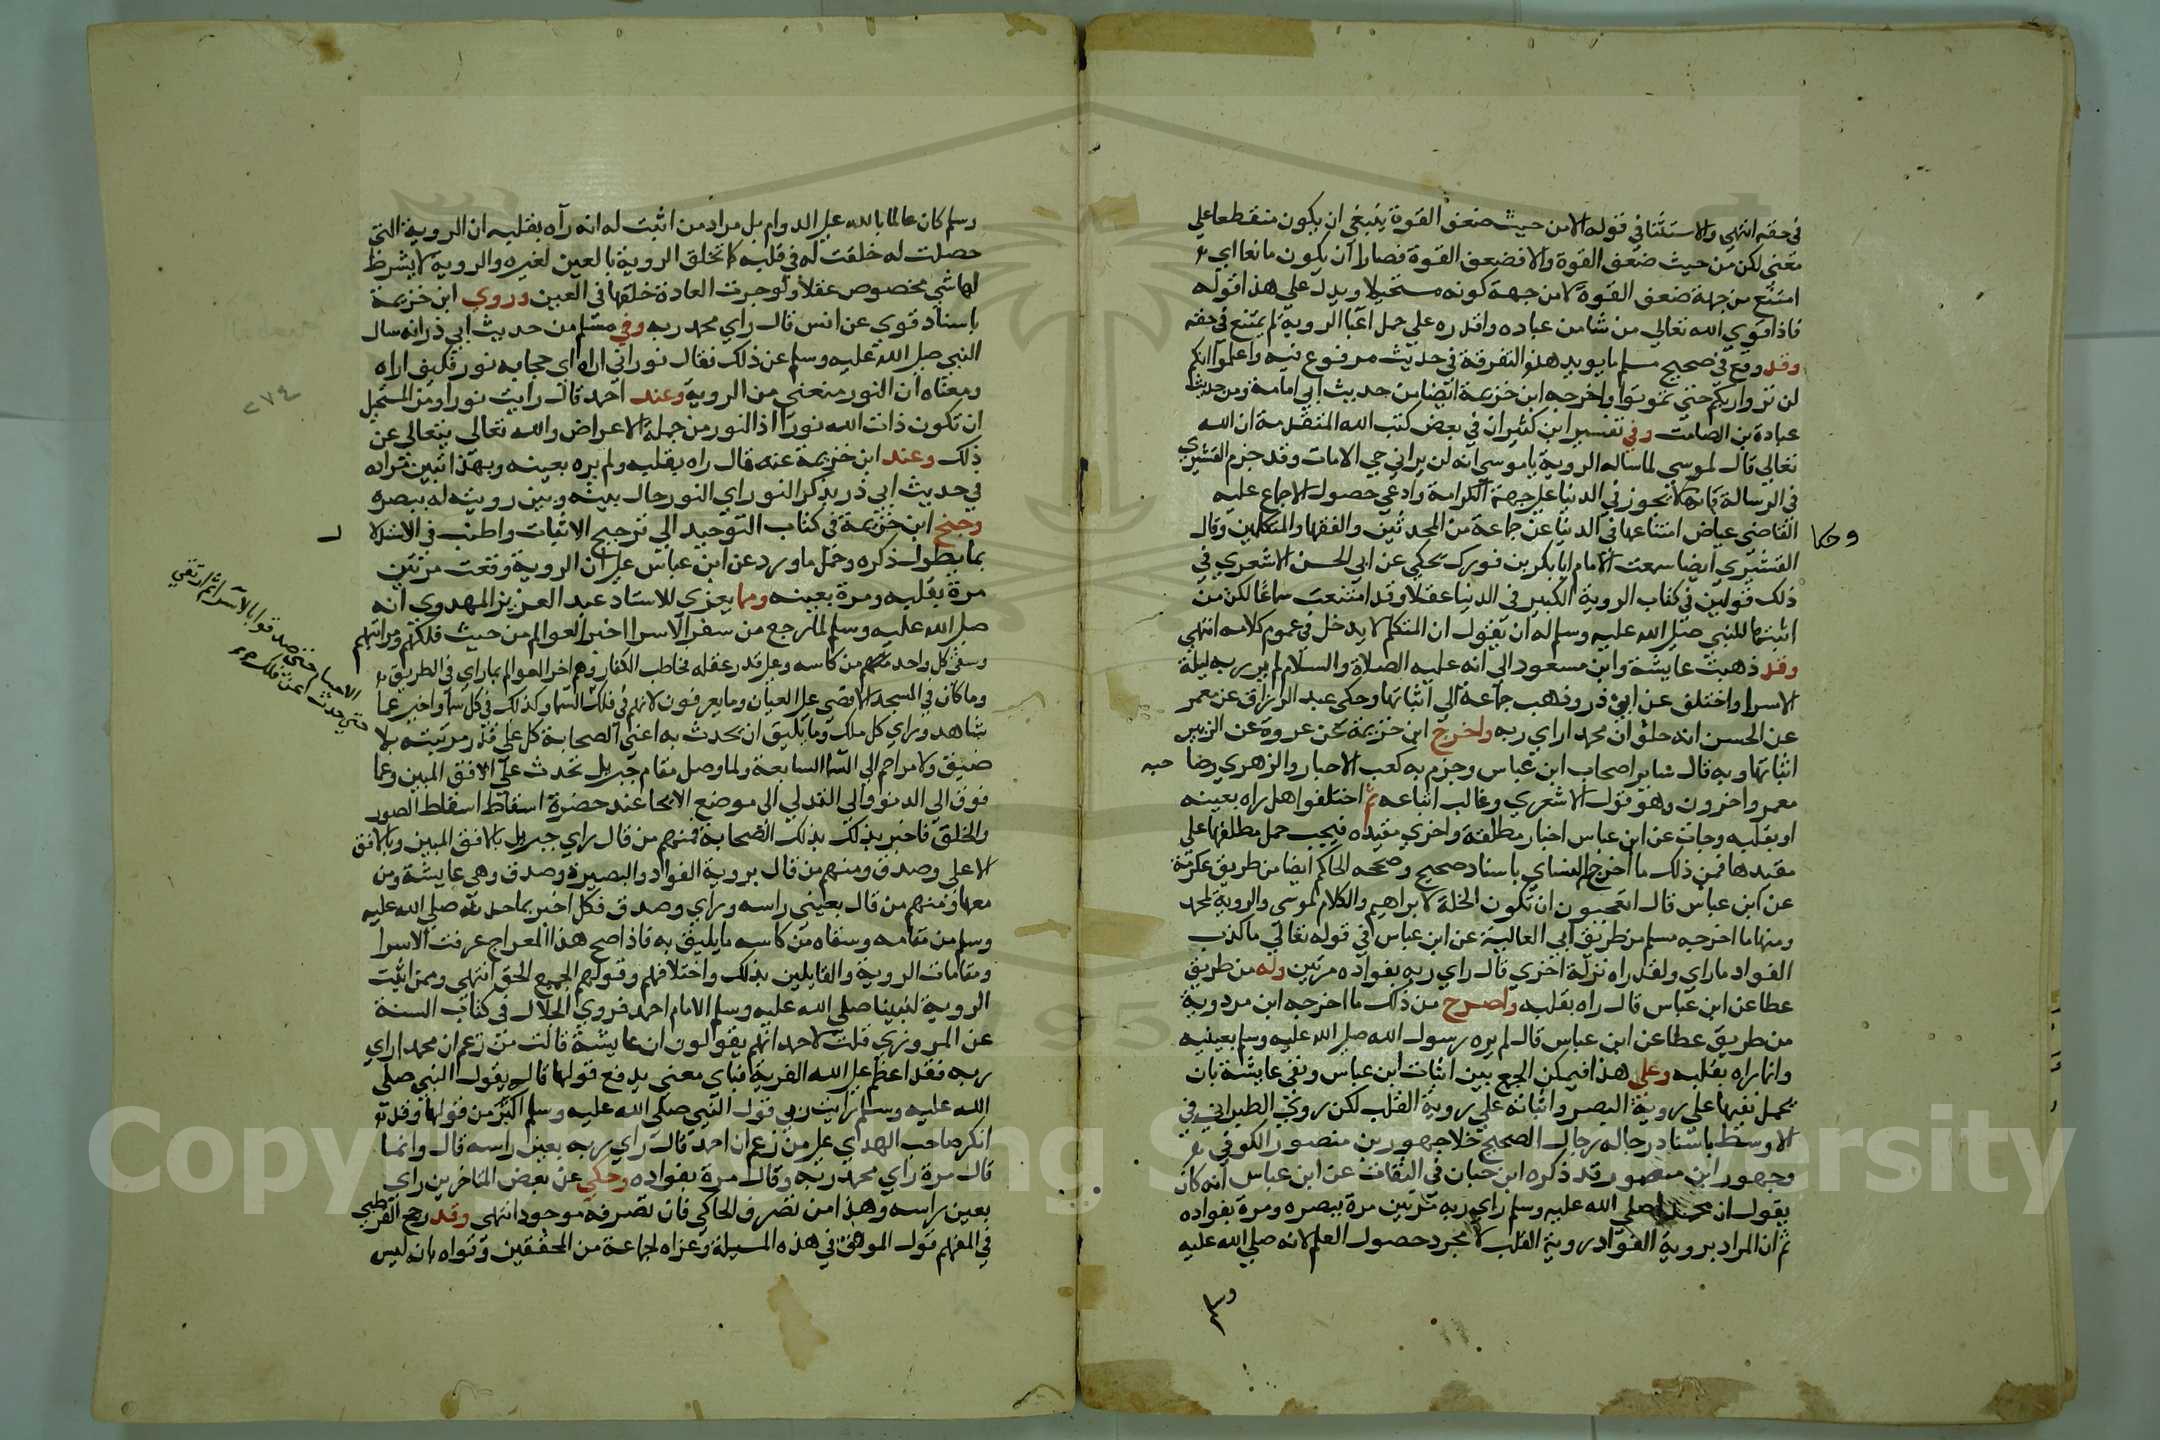 في حقه انتهى والاستثنا في قوله الا من حيث ضعف القوة ينبغي ان يكون منقطعا على
معنى لكن من حيث ضعف القوة والا فضعف القوة قصارا ان يكون مانعا اي
امتنع من جهة ضعف القوة لا من جهة كونه مستحيلا ويدل على هذا قوله
فاذا قوي الله تعالى من شا من عباده واقدره على حمل اعبا الروية لم يمتنع في حقه
وقد وقع في صحيح مسلم ما يويد هذه التفرقة في حديث مرفوع فيه واعلموا انكم
لن تروا ربكم حتى تموتوا واخرجه ابن خزيمة ايضا من حديث ابي امامة ومن حديث
عبادة بن الصامت وفي تفسير ابن كثير ان في بعض كتب الله المتقدمة ان الله
تعالى قال لموسى لما ساله الروية يا موسى انه لن يراني حي الا مات وقد جزم القشيري
في الرسالة بانه لا تجوز في الدنيا على جهة الكرامة وادعى حصول الاجماع عليه
وحكا
القاضي عياض امتناعها في الدنيا عن جماعة من المحدثين والفقها والمتكلمين وقال
القشيري ايضا سمعت الامام ابا بكر بن فورك يحكي عن ابي الحسن الاشعري في
ذلك قولين في كتاب الروية الكبير في الدنيا عقلا وقد امتنعت سماعا لكن من
اثبتها للنبي صلى الله عليه وسلم له ان يقول ان المتكلم لا يدخل في عموم كلامه انتهى
وقد ذهبت عايشة وابن مسعود الى انه عليه الصلاة والسلام لم ير ربه ليلة
الاسرا واختلف عن ابي ذر وذهب جماعة الى اثباتها وحكى عبد الرزاق عن معمر
عن الحسن انه حلف ان محمدا راي ربه واخرج ابن خزيمة عن عروة عن الزبير
اثباتها وبه قال ساير اصحاب ابن عباس وجزم به كعب الاحبار والزهري وصا حبه
معمر واخرون وهو قول الاشعري وغالب اتباعه ثم اختلفوا هل راه بعينه
او بقلبه وجات عن ابن عباس اخبار مطلقة واخرى مقيده فيجب حمل مطلقها على
مقيدها فمن ذلك ما اخرج النساي باسناد صحيح وصححه الحاكم ايضا من طريق عكرمة
عن ابن عباس قال اتعجبون ان تكون الخلة لابراهيم والكلام لموسى والروية لمحمد
ومنها ما اخرجه مسلم من طريق ابي العالية عن ابن عباس في قوله تعالى ما كذب
الفواد ما راي ولقد راه نزلة اخرى قال راي ربه بفواده مرتين وله من طريق
عطا عن ابن عباس قال راه بقلبه واصرح من ذلك ما اخرجه ابن مردوية
من طريق عطا عن ابن عباس قال لم يره رسول الله صلى الله عليه وسلم بعينيه
وانما راه بقلبه وعلى هذا فيمكن الجمع بين اثبات ابن عباس ونفي عايشة بان
يحمل نفيها على روية البصر واثباته على روية القلب لكن روي الطبراني في
الاوسط باسناد رجاله رجال الصحيح خلا جهور بن منصور الكوفي
وجهور ابن منصور قد ذكره ابن حبان في الثقات عن ابن عباس انه كان
يقول ان محمدا صلى الله عليه وسلم راي ربه مرتين مرة ببصره ومرة بفواده
ثم ان المراد بروية الفواد روية القلب لا مجرد حصول العلم لانه صلى الله عليه
وسلم
وسلم كان عالما بالله على الدوام بل مراد من اثبت له انه رآه بقلبه ان الروية التي
حصلت له خلقت له في قلبه كما تخلق الروية بالعين لغيره والروية لا يشرط
لها شي مخصوص عقلا ولو جرت العادة خلقها في العين وروي ابن خزيمة
باسناد قوي عن انس قال راي محمد ربه وفي مسلم من حديث ابي ذر انه سال
النبي صلى الله عليه وسلم عن ذلك فقال نور اني اراه اي حجابه نور فكيف اراه
ومعناه ان النور منعني من الروية وعند احمد قال رايت نورا ومن المستحيل
ان تكون ذات الله نورا اذ النور من جملة الاعراض والله تعالى يتعالى عن
ذلك وعند ابن خزيمة عنه قال راه بقلبه ولم يره بعينه وبهذا تبين مراده
في حديث ابي ذر بذكر النور اي النور حال بينه وبين رويته له ببصره
وجنح ابن خزيمة في كتاب التوحيد الى ترجيح الاثبات واطنب في الاستدلا ل
بما يطول ذكره وحمل ما ورد عن ابن عباس على ان الروية وقعت مرتين
مرة بقلبه ومرة بعينه ومما يعزي للاستاد عبد العزيز المهدوي انه
صلى الله عليه وسلم لما رجع من سفر الاسرا اخبر العوالم من حيث فلكهم ومراتبهم
وسقى كل واحد منهم من كاسه وعلى قدر عقله فخاطب الكفار وهم اخر العوالم بما راي في الطريق
وما كان في المسجد الاقصى على العيان وما يعرفون لانهم في فلك السما وكذلك في كل سما واخبر عما
شاهد وراي كل ملك وما يليق ان يحدث به اعني الصحابة كل على قدر مرتبته بلا
ضيق ولا مزاحم الى السما السابعة ولما وصل مقام جبريل تحدث على الافق المبين وعما
فوق الى الدنو والى التدلي الى موضع الايحا عند حضرة اسقاط اسقاط الصور
والخلق فاخبر بذلك بذلك الصحابة فمنهم من قال راي جبريل بالافق المبين وبالافق
الاعلى وصدق ومنهم من قال بروية الفواد والبصيرة وصدق وهي عايشة ومن
معها ومنهم من قال بعيني راسه وراي وصدق فكل اخبر بما حدثه صلى الله عليه
وسلم من مقامه وسقاه من كاسه ما يليق به فاذا صح هذا المعراج عرفت الاسرا
ومقامات الروية والقايلين بذلك واختلافهم وقولهم الجميع الحق انتهى وممن اثبت
الروية لنبينا صلى الله عليه وسلم الامام احمد فروي الخلال في كتاب السنة
عن المروزي قلت لاحمد انهم يقولون ان عايشة قالت من زعم ان محمدا راي
ربه فقد اعظم على الله الفرية فباي معنى يدفع قولها قال بقول النبي صلى
الله عليه وسلم رايت ربي قول النبي صلى الله عليه وسلم اكبر من قولها وقد
انكر صاحب الهدي على من زعم ان احمد قال راي ربه بعين راسه قال وانما
قال مرة راي محمد ربه وقال مرة بفواده وحكي عن بعض المتاخرين راي
بعين راسه وهذا من تصرف الحاكي فان تصرفه موجود انتهى وقد رجح القرطبي
في المفهم قول الوقف في هذه المسيلة وعزاه لجماعة من المحققين وقواه بانه ليس
حتى صدقوا بالاسرا ثم ارتقى
حتى حدث عن فلك
٢٧٤
Copyright © King Saud University
195